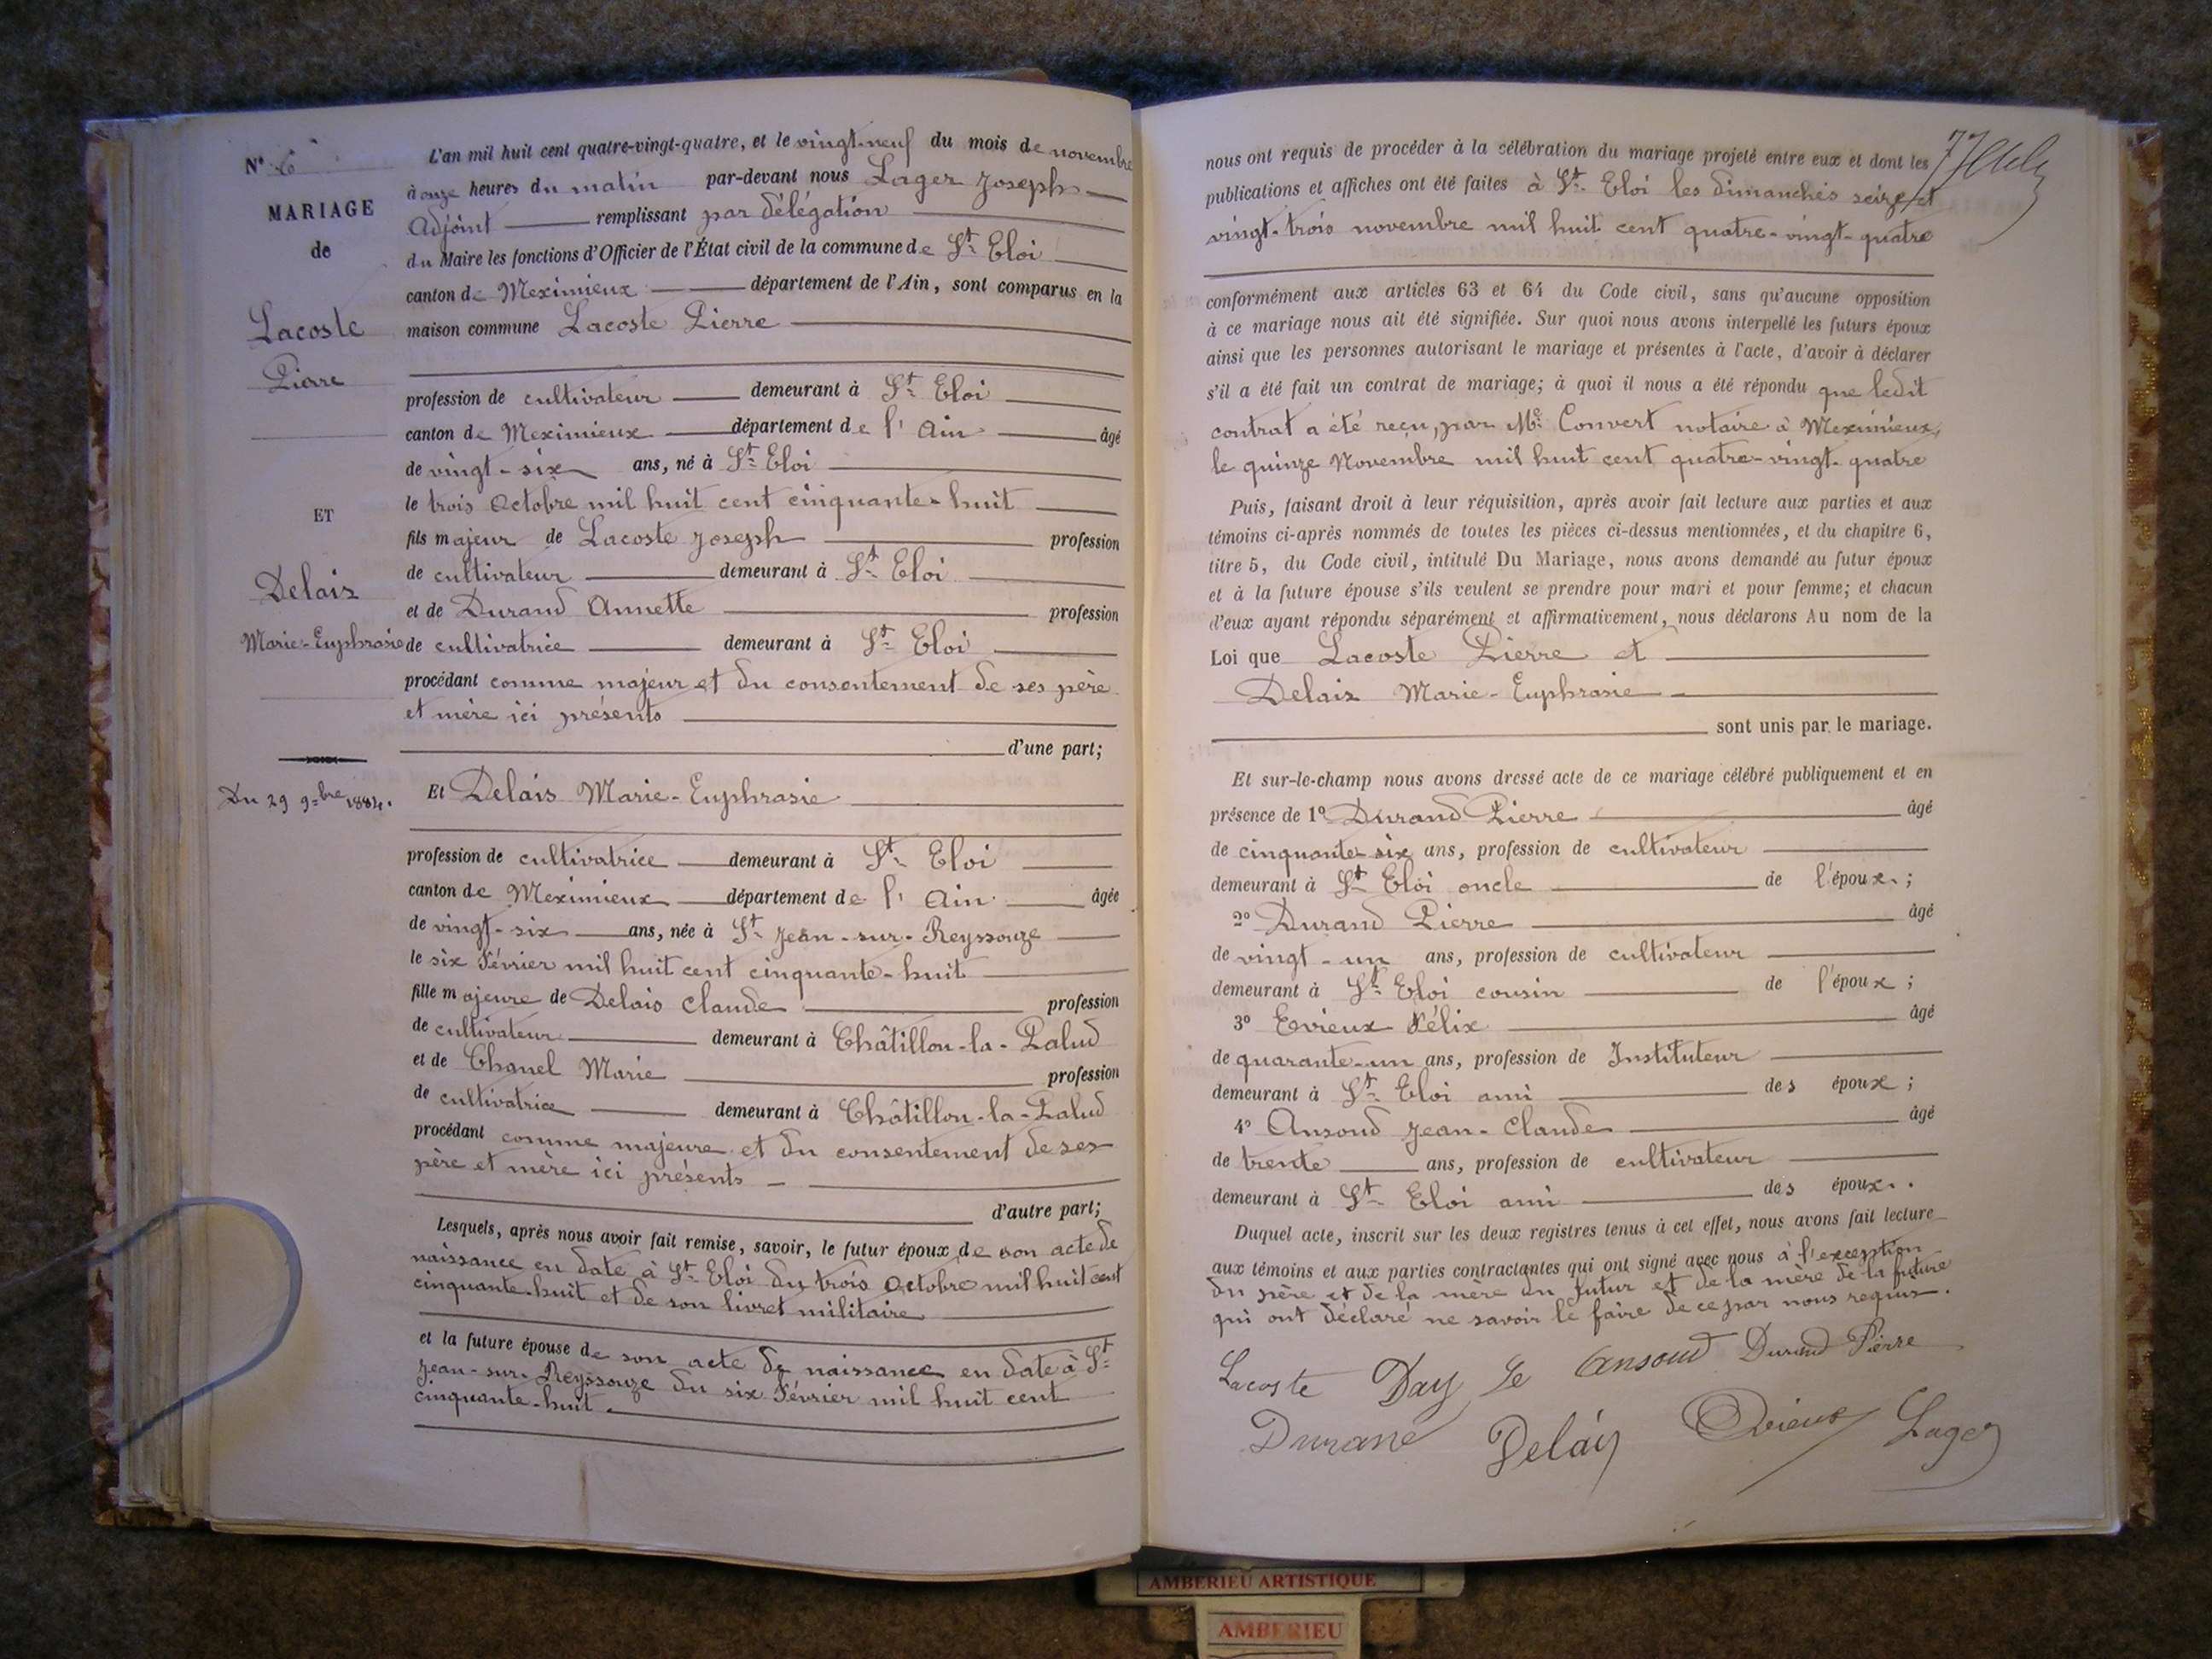 N° 6
MARIAGE
de
Lacoste
Pierre
ET
Delais
Marie-Euphrasie
Du 29 9=bre 1884.
L'an mil huit cent quatre-vingt-quatre, et le vingt-neuf du mois de novembre
à onze heures du matin par-devant nous Lager Joseph
Adjoint remplissant par délégation
du Maire les fonctions d'Officier de l'État civil de la commune de St Eloi
canton de Meximieux département de l'Ain, sont comparus en la
maison commune Lacoste Pierre
profession de cultivateur demeurant à St Eloi
canton de Meximieux département de l'Ain âgé
de vingt-six ans, né à St Eloi
le trois Octobre mil huit cent cinquante-huit
fils majeur de Lacoste Joseph profession
de cultivateur demeurant à St Eloi
et de Durand Annette profession
de cultivatrice demeurant à St Eloi
procédant comme majeur et du consentement de ses père
et mère ici présents
d'une part;
Et Delais Marie-Euphrasie
profession de cultivatrice demeurant à St Eloi
canton de Meximieux département de l'Ain âgée
de vingt-six ans, née à St Jean-sur-Reyssouze
le six Février mil huit cent cinquante-huit
fille majeure de Delais Claude profession
de cultivateur demeurant à Châtillon-la-Palud
et de Chanel Marie profession
de cultivatrice demeurant à Châtillon-la-Palud
procédant comme majeure et du consentement de ses
père et mère ici présents
d'autre part;
Lesquels, après nous avoir fait remise, savoir, le futur époux de son acte de
naissance en date à St Eloi du trois Octobre mil huit cent
cinquante-huit et de son livret militaire
et la future épouse de son acte de naissance en date à St
Jean-sur-Reyssouze du six Février mil huit cent
cinquante-huit.
nous ont requis de procéder à la célébration du mariage projeté entre eux et dont les
publications et affiches ont été faites à St Eloi les dimanches seize et
vingt-trois novembre mil huit cent quatre-vingt-quatre
conformément aux articles 63 et 64 du Code civil, sans qu'aucune opposition
à ce mariage nous ait été signifiée. Sur quoi nous avons interpellé les futurs époux
ainsi que les personnes autorisant le mariage et présentes à l'acte, d'avoir à déclarer
s'il a été fait un contrat de mariage; à quoi il nous a été répondu que ledit
contrat a été reçu, par Me Convert notaire à Meximieux,
le quinze Novembre mil huit cent quatre-vingt-quatre
Puis, faisant droit à leur réquisition, après avoir fait lecture aux parties et aux
témoins ci-après nommés de toutes les pièces ci-dessus mentionnées, et du chapitre 6,
titre 5, du Code civil, intitulé Du Mariage, nous avons demandé au futur époux
et à la future épouse s'ils veulent se prendre pour mari et pour femme; et chacun
d'eux ayant répondu séparément et affirmativement, nous déclarons Au nom de la
Loi que Lacoste Pierre et
Delais Marie-Euphrasie
sont unis par le mariage.
Et sur-le-champ nous avons dressé acte de ce mariage célébré publiquement et en
présence de 1° Durand Pierre âgé
de cinquante-six ans, profession de cultivateur
demeurant à St Eloi oncle de l'époux;
2° Durand Pierre âgé
de vingt-un ans, profession de cultivateur
demeurant à St Eloi cousin de l'époux;
3° Evieux Félix âgé
de quarante-un ans, profession de Instituteur
demeurant à St Eloi ami des époux;
4° Ansoud Jean-Claude âgé
de trente ans, profession de cultivateur
demeurant à St Eloi ami des époux.
Duquel acte, inscrit sur les deux registres tenus à cet effet, nous avons fait lecture
aux témoins et aux parties contractantes qui ont signé avec nous à l'exception
du père et de la mère du futur et de la mère de la future
qui ont déclaré ne savoir le faire de ce par nous requis.
Lacoste Ansoud Durand Pierre
Durand Delay Evieux Lager
AMBERIEU ARTISTIQUE
AMBERIEU